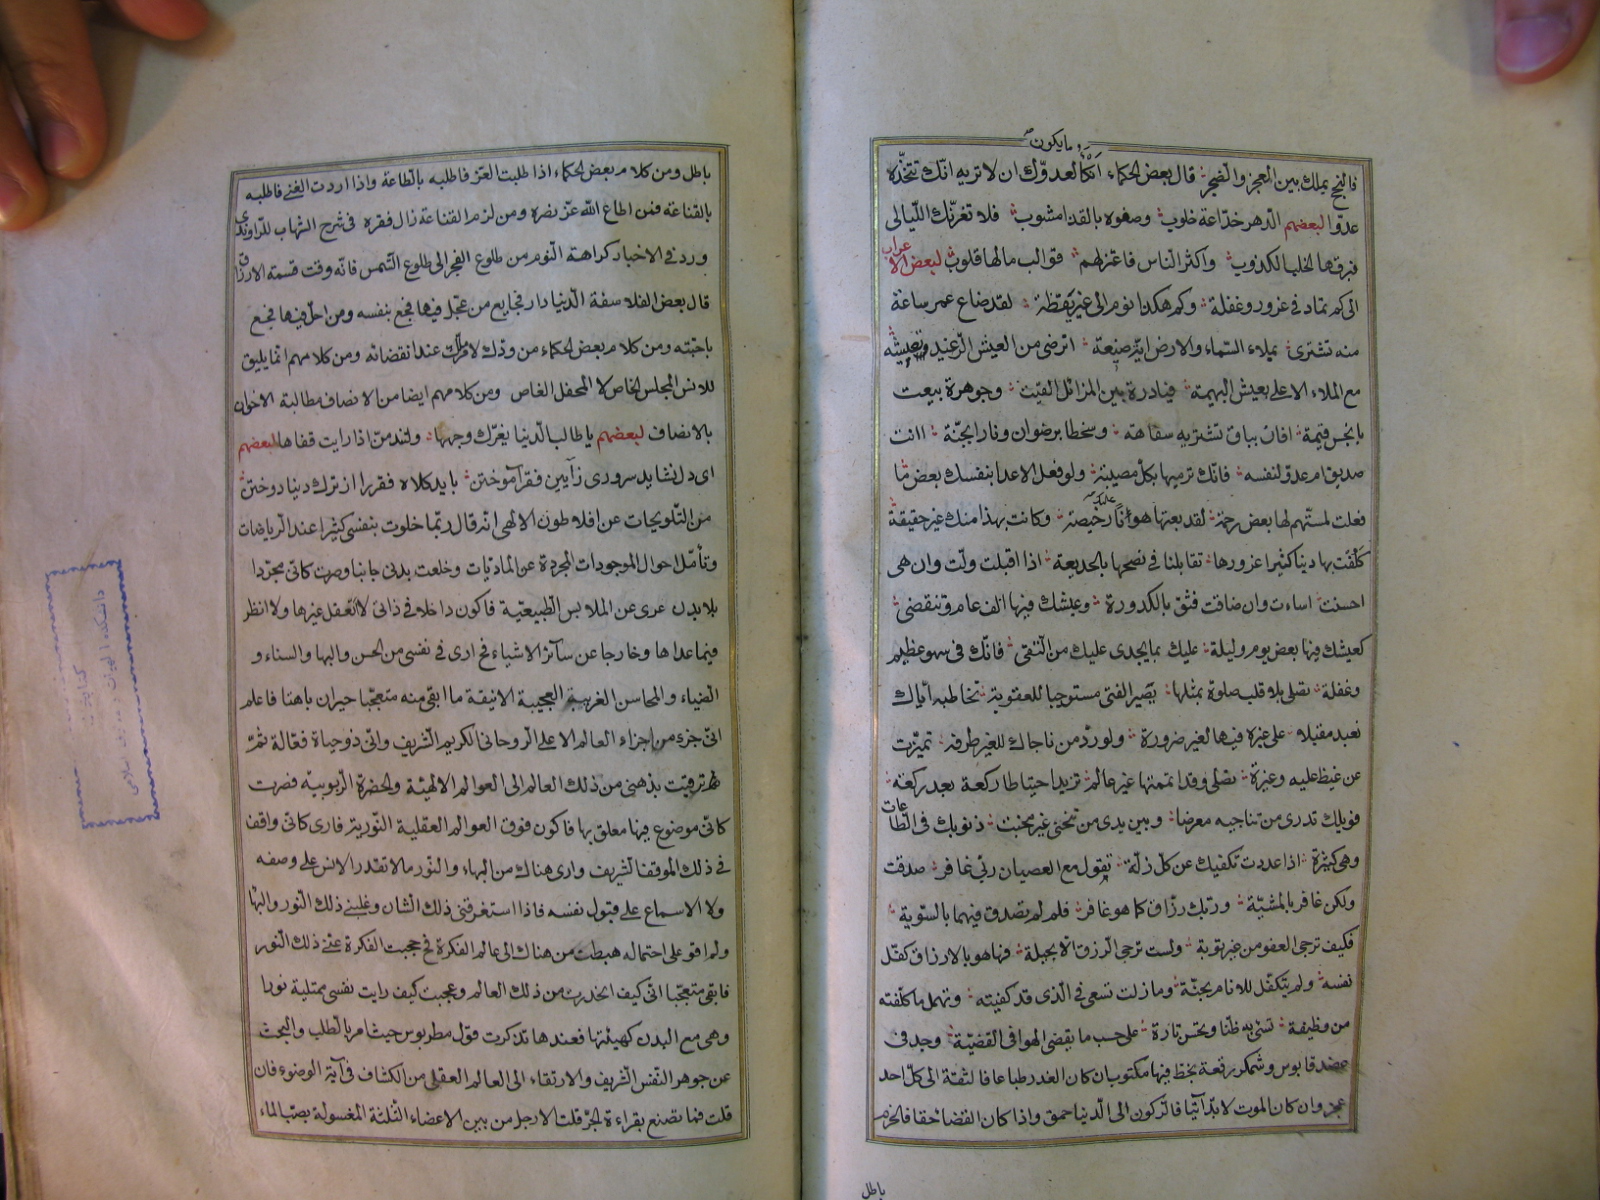 و ما یکون
فالنجح یملک بین العجز والضجر قال بعض الحکماء انکأ لعدوّک ان لا تریه انّک تتخذه
عدوّا لبعضهم الدهر خدّاعة خلوب وصفوه بالقذا مشوب فلا تغرنّک اللّیالی
فبرقها الخلب الکذوب واکثر النّاس فاعتزلهم قوالب ما لها قلوب لبعض الاعراب
الی کم تماد فی غرور وغفلة وکم هکذا نوم الی غیر یقظة لقد ضاع عمر ساعة
منه تشتری بملاء السّماء والارض ایّة ضیعة اترضی من العیش الرّغید وتعیشه
مع الملاء الاعلی بعیش البهیمة فیا درة بین المزابل القیت وجوهرة بیعت
بابخس قیمة افان بباق تشتریه سفاهة وسخطا برضوان ونارا بجنّة ا انت
صدیق ام عدو لنفسه فانّک ترمیها بکل مصیبة ولو فعل الاعدا بنفسک بعض ما
فعلت لمستهم لها بعض رحمة لقد بعتها هونا علیک رخیصة وکانت بهذا منک غیر حقیقة
کلفت بها دنیا کثیرا غرورها تقابلنا فی نصحها بالخدیعة اذا اقبلت ولّت وان هی
احسنت اساءت وان صافت فثق بالکدورة وعیشک فیها الف عام وتنقضی
کعیشک فیها بعض یوم ولیلة علیک بما یجدی علیک من التقی فانّک فی سهو عظیم
وغفلة تصلی بلا قلب صلوة بمثلها یصیر الفتی مستوجبا للعقوبة تخاطبه ایّاک
نعبد مقبلا علی غیره فیها لغیر ضرورة ولو ردّ من ناجاک للغیر طرفه تمیّزت
عن غیظ علیه وغیرة تصلی وقد اتممتها غیر عالم تزید احتیاطا رکعة بعد رکعة
فویلک تدری من تناجیه معرضا وبین یدی من تنحنی غیر مخبت ذنوبک فی الطّاعات
وهی کثیرة اذا عددت تکفیک عن کل زلّة تقول مع العصیان ربّی غافر صدقت
ولکن غافر بالمشیّة وربّک رزّاق کما هو غافر فلم لم تصدق فیهما بالسّویة
فکیف ترجی العفو من غیر توبة ولست ترجی الرزق الّا بحیلة فها هو بالارزاق کفل
نفسه ولم یتکفّل للانام بجنّة وما زلت تسعی فی الّذی قد کفیته وتهمل ما کلّفته
من وظیفة تسئ به ظنّا وتحسن تارة علی حسب ما یقضی الهوا فی القضیّة وجد فی
عضد قابوس وشمکیر رقعة بخطّ فیها مکتوب ان کان الغدر طباعا فالثقة الی کلّ احد
عجز وان کان الموت لا بدّ آتیا فالرکون الی الدّنیا حمق واذا کان القضا حقا فالحزم
باطل
باطل ومن کلام بعض الحکماء اذا طلبت العزّ فاطلبه بالطّاعة واذا اردت الغنی فاطلبه
بالقناعة فمن اطاع اللّه عزّ نصره ومن لزم القناعة زال فقره فی شرح الشهاب للرّاوندی
ورد فی الاخبار کراهة النّوم من طلوع الفجر الی طلوع الشّمس فانّه وقت قسمة الارزاق
قال بعض الفلاسفة الدّنیا دار فجایع من عجّل فیها فجع بنفسه ومن اجّل فیها فجع
باحبّته ومن کلام بعض الحکماء من ودّک لامر ملّک عند انقضائه ومن کلامهم انما یلیق
للانس المجلس الخاص لا المحفل الغاص ومن کلامهم ایضا من الانصاف مطالبة الاخوان
بالانصاف لبعضهم یا طالب الدّنیا یغرّک وجهها ولتندمنّ اذا رایت قفاها لبعضهم
ای دل نشاید سروری زآیین فقر آموختن باید کلاه فقر را از ترک دنیا دوختن
من التلویحات عن افلاطون الالهی انّه قال ربّما خلوت بنفسی کثیرا عند الریاضات
وتأمّل احوال الموجودات المجردة عن المادیّات وخلعت بدنی جانبا وصرت کانّی مجرّد ا
بلا بدن عری عن الملابس الطّبیعیّة فاکون داخلا فی ذاتی لا اتعقل غیرها ولا انظر
فیما عداها وخارجا عن سائر الاشیاء فح اری فی نفسی من الحسن والبها والسناء و
الضیاء والمحاسن الغریبة العجیبة الانیقة ما ابقی منه متعجّبا حیران باهتا فاعلم
انّی جزء من اجزاء العالم الاعلی الروحانی الکریم الشریف وانّی ذو حیاة فعّالة ثمّ
ترقیّت بذهنی من ذلک العالم الی العوالم الالهیّة والحضرة الربوبیّه فصرت
کانّی موضوع فیها معلق بها فاکون فوق العوالم العقلیة النّوریة فاری کانّی واقف
فی ذلک الموقف الشریف واری هناک من البهاء والنّور ما لا تقدر الالسن علی وصفه
ولا الاسماع علی قبول نفسه فاذا استغرقنی ذلک الشّان وغلبنی ذلک النّور والبها
ولم اقو علی احتماله هبطت من هناک الی عالم الفکرة فح حجبت الفکرة عنّی ذلک النّور
فابقی متعجّبا انّی کیف انحدرت من ذلک العالم وعجبت کیف رایت نفسی ممتلیة نورا
وهی مع البدن کهیئتها فعندها تذکرت قول مطریوس حیث امر بالطلب والبحث
عن جوهر النّفس الشریف والارتقاء الی العالم العقلی من الکشاف فی آیة الوضوء فان
قلت فما تصنع بقراءة الجرّ قلت الارجل من بین الاعضاء الثّلثة المغسولة بصبّ الماء